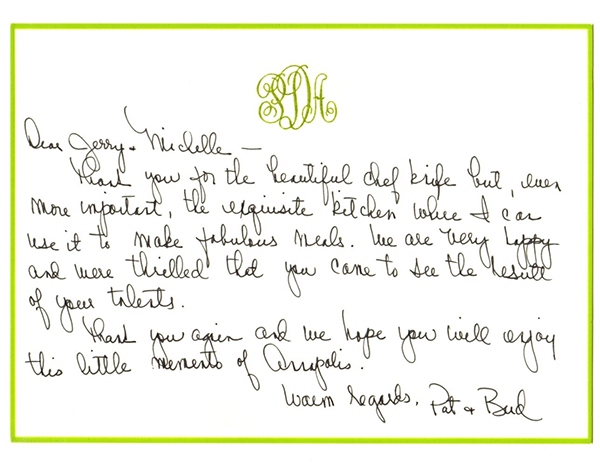 PDH
Dear Jerry + Michelle —
Thank you for the beautiful chef knife but, even
more important, the exquisite kitchen where I can
use it to make fabulous meals. We are very happy
and were thrilled that you came to see the result
of your talents.
Thank you again and we hope you will enjoy
this little memento of Annapolis.
Warm regards, Pat + Bud